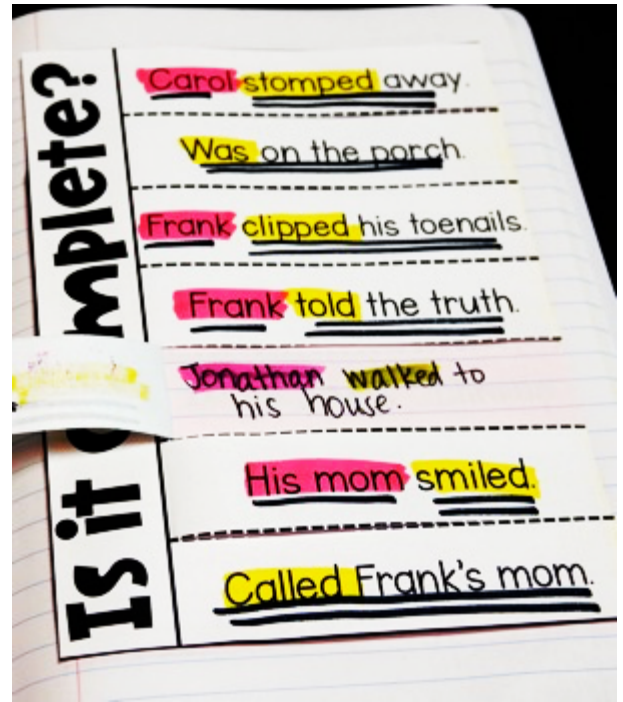 Is it complete?
Carol stomped away.
Was on the porch.
Frank clipped his toenails.
Frank told the truth.
Jonathan walked to
his house.
His mom smiled.
Called Frank's mom.